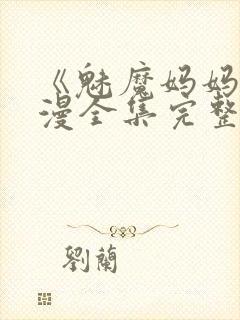 《魅魔妈妈
漫全集完整
劉蘭